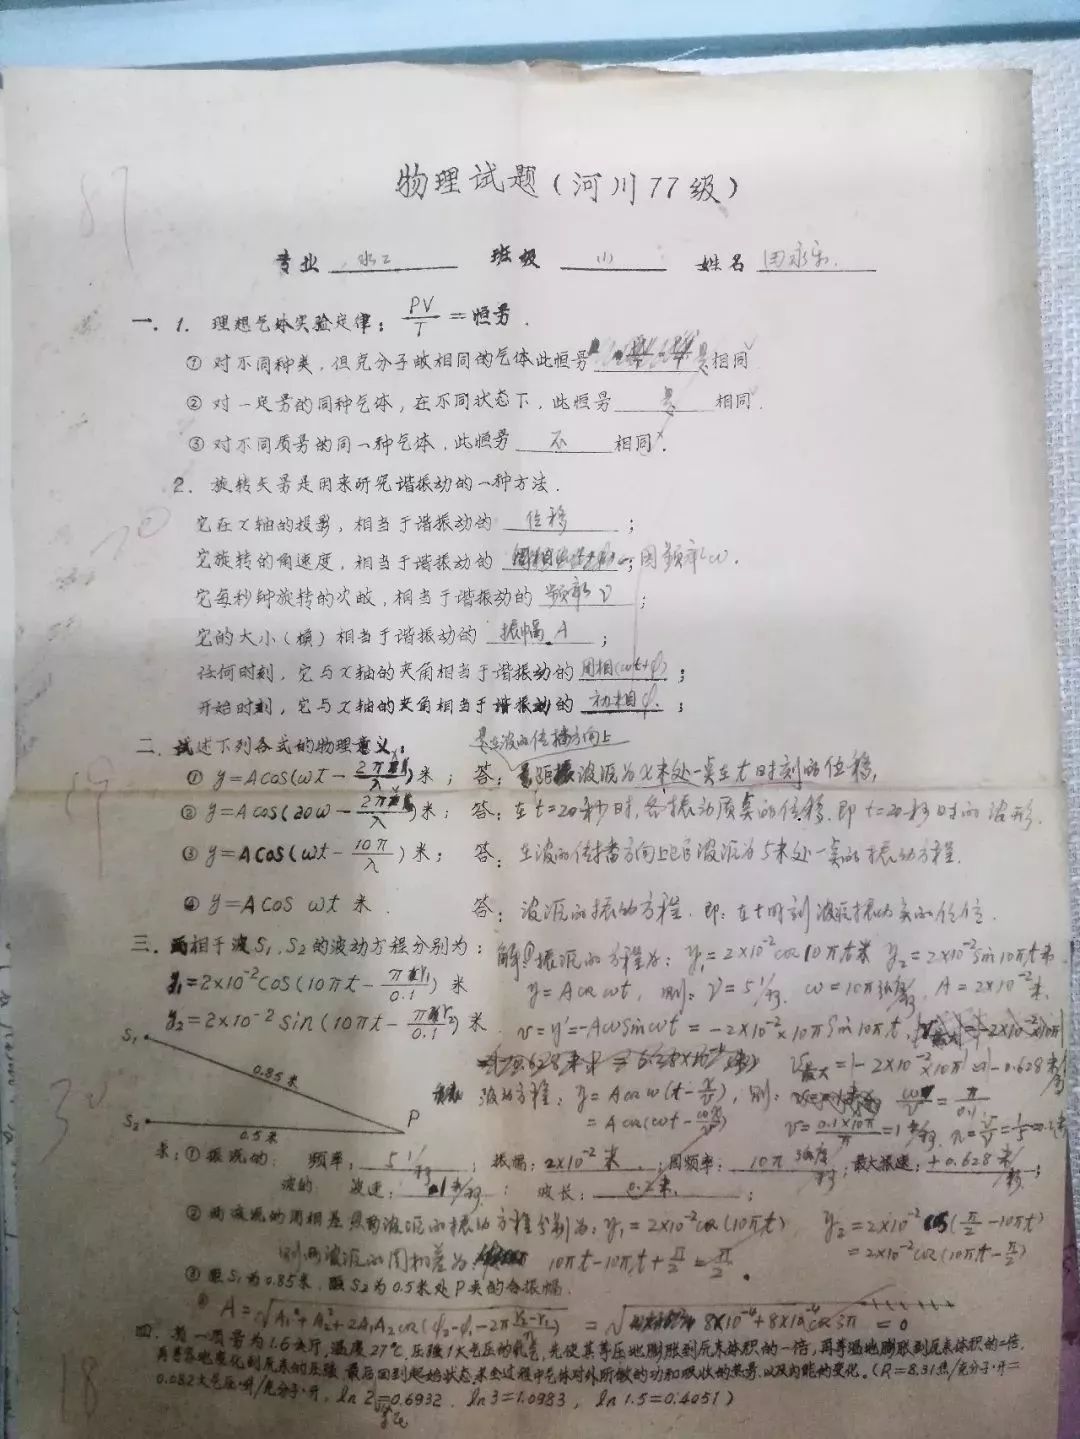 87
物理试题(河川77级)
专业 水工 班级 (1) 姓名 田永乐.
一. 1. 理想气体实验定律: PV/T = 恒量.
① 对不同种类, 但克分子数相同的气体此恒量 是 相同
② 对一定量的同种气体, 在不同状态下, 此恒量 是 相同.
③ 对不同质量的同一种气体, 此恒量 不 相同.
2. 旋转矢量是用来研究谐振动的一种方法.
它在x轴的投影, 相当于谐振动的 位移 ;
它旋转的角速度, 相当于谐振动的 ; 圆频率ω.
它每秒钟旋转的次数, 相当于谐振动的 频率ν ;
它的大小(模)相当于谐振动的 振幅A ;
任何时刻, 它与x轴的夹角相当于谐振动的 周相(ωt+φ) ;
开始时刻, 它与x轴的夹角相当于谐振动的 初相φ. ;
二. 试述下列各式的物理意义: 是在波的传播方向上
① y=Acos(ωt - 2πx/λ)米; 答: 距振波源为x米处一点在t时刻的位移,
② y=Acos(20ω - 2πx/λ)米; 答: 在t=20秒时, 各振动质点的位移. 即t=20秒时的波形.
③ y=Acos(ωt - 10π/λ)米; 答: 在波的传播方向上距波源为5米处一点的振动方程.
④ y=Acos ωt 米. 答: 波源的振动方程. 即: 在t时刻波源振动点的位移.
三. 两相干波S₁, S₂的波动方程分别为: 解: ① 振源的方程为: y₁=2×10⁻²cos10πt米 y₂=2×10⁻²sin10πt米
y₁=2×10⁻²cos(10πt - πr₁/0.1)米 y=Acosωt, 则: ν=5 1/秒. ω=10π 弧度/秒, A=2×10⁻²米.
y₂=2×10⁻²sin(10πt - πr₂/0.1)米 v=y'=-Aωsinωt=-2×10⁻²×10πsin10πt,
S₁ v最大=|-2×10⁻²×10π|=|-0.628米/秒
0.85米
波动方程: y=Acosω(t-x/v), 则: ω/v=π/0.1
S₂ P =Acos(ωt-ωx/v) v=0.1×10π/π=1米/秒,
0.5米
求: ① 振源的: 频率: 5 1/秒 ; 振幅: 2×10⁻²米. ; 圆频率: 10π 弧度/秒 ; 最大振速: +0.628米/秒 ;
波的: 波速: 1米/秒 ; 波长: 0.2米. ;
② 两波源的周相差 两波源的振动方程分别为: y₁=2×10⁻²cos(10πt) y₂=2×10⁻²cos(π/2-10πt)
则两波源的周相差为: 10πt-10πt+π/2=π/2. =2×10⁻²cos(10πt-π/2)
③ 距S₁为0.85米, 距S₂为0.5米处P点的合振幅.
A=√A₁²+A₂²+2A₁A₂cos(φ₂-φ₁-2π r₂-r₁/λ) = √8×10⁻⁴+8×10⁻⁴cos3π = 0
四. 有一质量为1.6千斤, 温度27℃, 压强1大气压的氧气, 先使其等压地膨胀到原来体积的一倍, 再等温地膨胀到原来体积的一倍,
再等容地变化到原来的压强, 最后回到起始状态, 求全过程中气体对外所做的功和吸收的热量, 以及内能的变化. (R=8.31焦/克分子·开=
0.082大气压·升/克分子·开, ln2=0.6932. ln3=1.0983, ln1.5=0.4051)